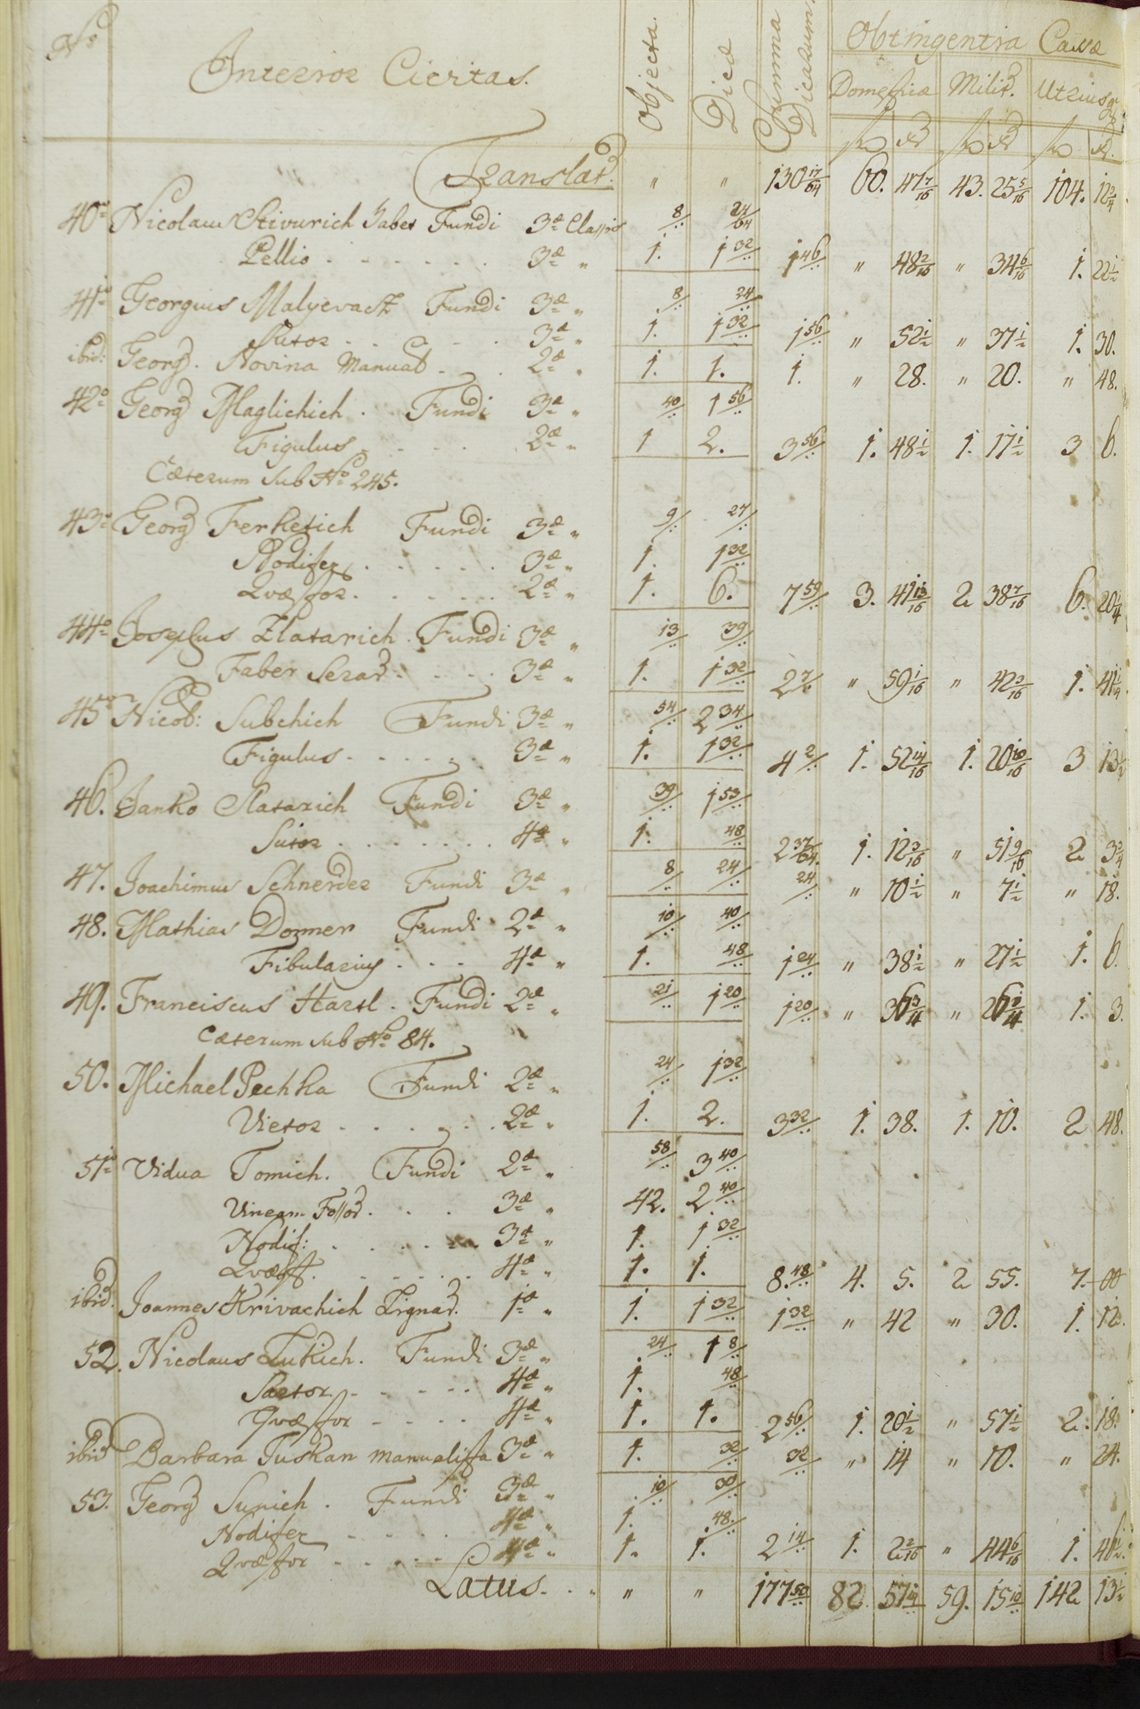 No Interior Civitas. Objecta. Dicæ Summa Dicarum. Obtingentia Cassæ
Domesticæ Milit. Utriusq
fl xr fl xr fl xr
Translat. " " 130 17/64 60. 41 7/16 43. 25 5/16 104. 12 3/4
40 Nicolaus Stivurich Faber Fundi 3æ Classis 8 24/64
Pellio 3æ " 1. 1 32 1 46 " 48 2/16 " 34 6/16 1. 22 1/2
41 Georgius Malyevacz Fundi 3æ " 8 24
Sutor 3æ " 1. 1 32 1 56 " 52 1/2 " 37 1/2 1. 30.
ibid: Georg. Novina Manual 2æ " 1. 1. 1. " 28. " 20. " 48.
42 Georg Maglichich Fundi 3æ " 40 1 56
Figulus 2æ " 1 2. 3 56 1. 48 1/2 1. 17 1/2 3 6.
Cæterum Sub No 245.
43 Georg Ferketich Fundi 3æ " 9 27
Nodifex 3æ " 1. 1 32
Quæstor 2æ " 1. 6. 7 59 3. 41 13/16 2 38 7/16 6. 20 1/4
44 Josephus Zlatarich Fundi 3æ " 13 39
Faber Serar. 3æ " 1. 1 32 2 7 " 59 1/16 " 42 3/16 1. 41 1/4
45 Nicol: Subchich Fundi 3æ " 54 2 34
Figulus 3æ " 1. 1 32 4 2 1. 52 14/16 1. 20 10/16 3 13 1/2
46. Janko Slatarich Fundi 3æ " 39 1 53
Sutor 4æ " 1. 48 2 37/64 1. 12 3/16 " 51 9/16 2 3 3/4
47. Joachimus Schnerder Fundi 3æ " 8 24 24 " 10 1/2 " 7 1/2 " 18.
48. Mathias Dormer Fundi 2æ " 10 40
Fibularius 4æ " 1. 48 1 24 " 38 1/2 " 27 1/2 1. 6
49. Franciscus Hartl Fundi 2æ " 21 1 20 1 20 " 36 3/4 " 26 1/4 1. 3.
Cæterum Sub No 84.
50. Michael Pechka Fundi 2æ " 24 1 32
Vietor 2æ " 1. 2. 3 32 1. 38. 1. 10. 2 48.
51 Vidua Tomich. Fundi 2æ " 58 3 40
Vinearum Fossor. 3æ " 42. 2 40
Nodif: 3æ " 1. 1 32
Quæst. 4æ " 1. 1. 8. 48 4. 5. 2 55. 7. 00
ibid. Joannes Krivachich Lignar. 1æ " 1. 1 32 1 32 " 42 " 30. 1. 12.
52. Nicolaus Lukich. Fundi 3æ " 24 1 8
Sartor 4æ " 1. 48
Quæstor 4æ " 1. 1. 2 56 1. 20 1/2 " 57 1/2 2. 18.
ibid Barbara Tuskan Manualista 3æ " 1. 32 32 " 14 " 10. " 24.
53. Georg Supich. Fundi 3æ " 10 30
Nodifex 4æ " 1. 48.
Quæstor 4æ " 1. 1. 2 14 1. 2 2/16 " 44 6/16 1. 46 1/2
Latus. " " 177 50 82 57 59. 15 10 142 13 1/2